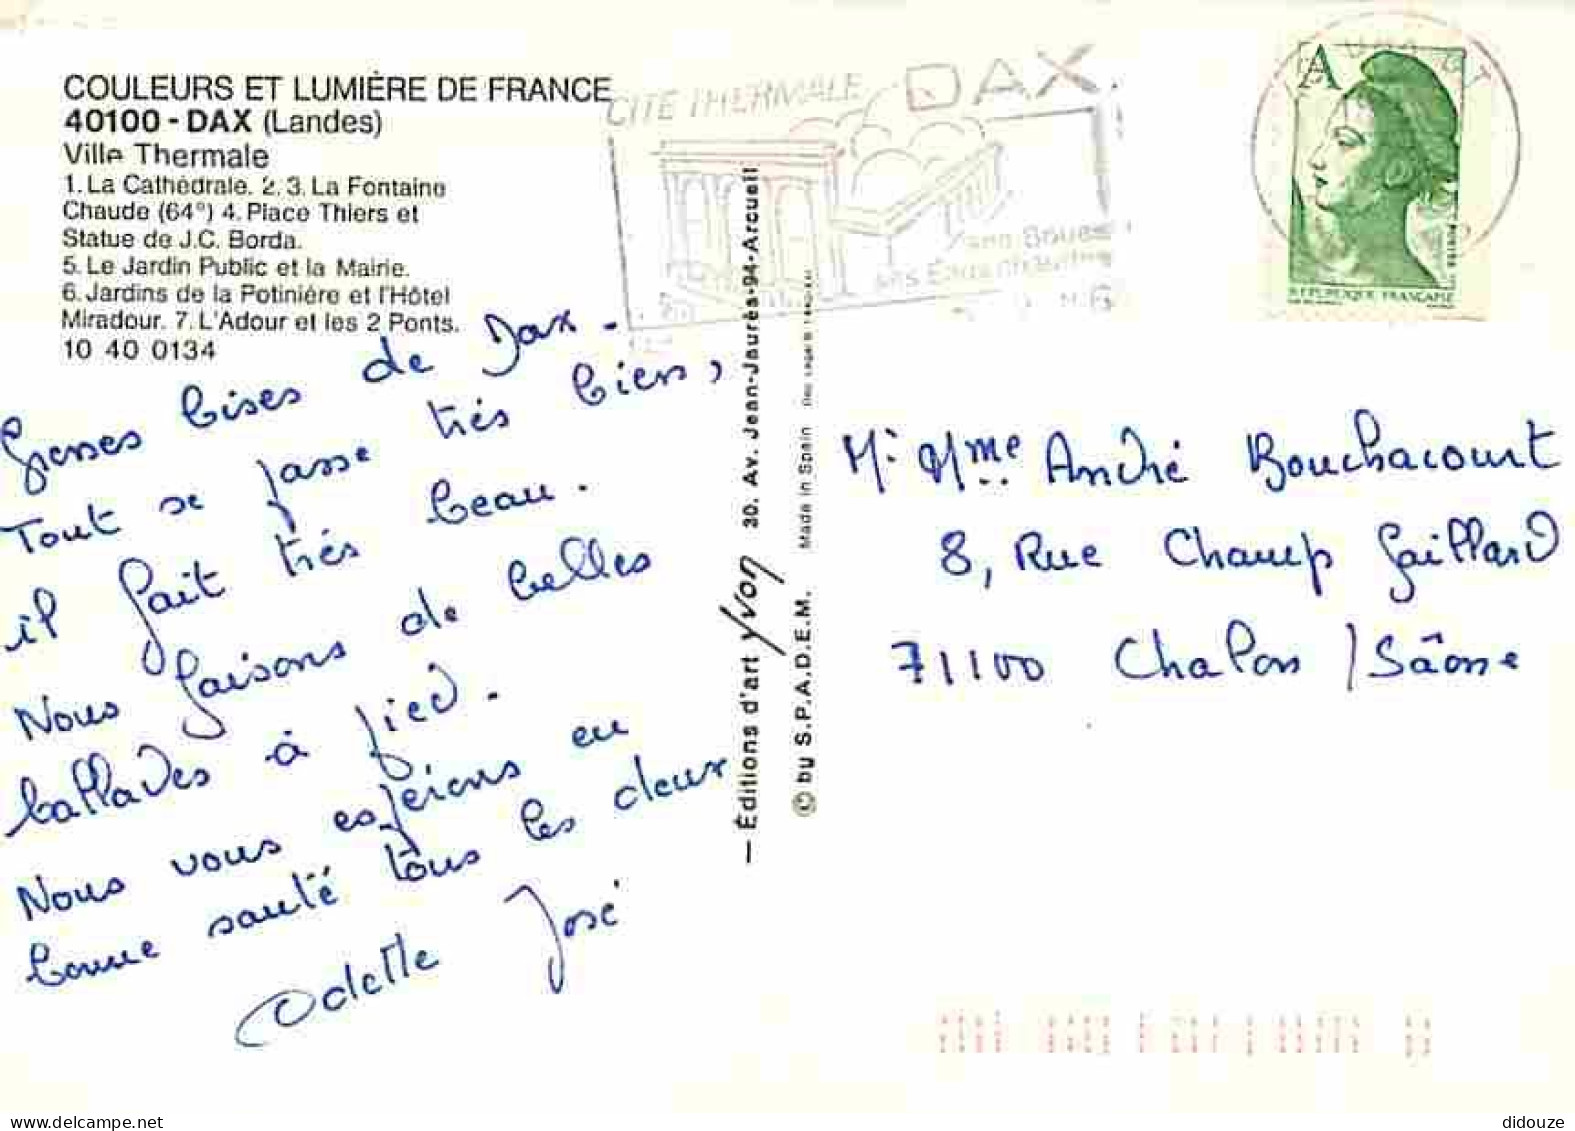 COULEURS ET LUMIÈRE DE FRANCE
40100 - DAX (Landes)
Ville Thermale
1. La Cathédrale. 2. 3. La Fontaine
Chaude (64°) 4. Place Thiers et
Statue de J.C. Borda.
5. Le Jardin Public et la Mairie.
6. Jardins de la Potinière et l'Hôtel
Miradour. 7. L'Adour et les 2 Ponts.
10 40 0134
Grosses bises de Dax -
Tout se passe très bien,
il fait très beau.
Nous faisons de belles
ballades à pied.
Nous vous espérons en
bonne santé tous les deux
Odette José
CITÉ THERMALE DAX
— Éditions d'art Yvon 30. Av. Jean-Jaurès-94-Arcueil
© by S.P.A.D.E.M. Made in Spain
A
REPUBLIQUE FRANÇAISE
Mr Mme André Bouchacourt
8, Rue Champ Gaillard
71100 Chalon / Saône
didouze